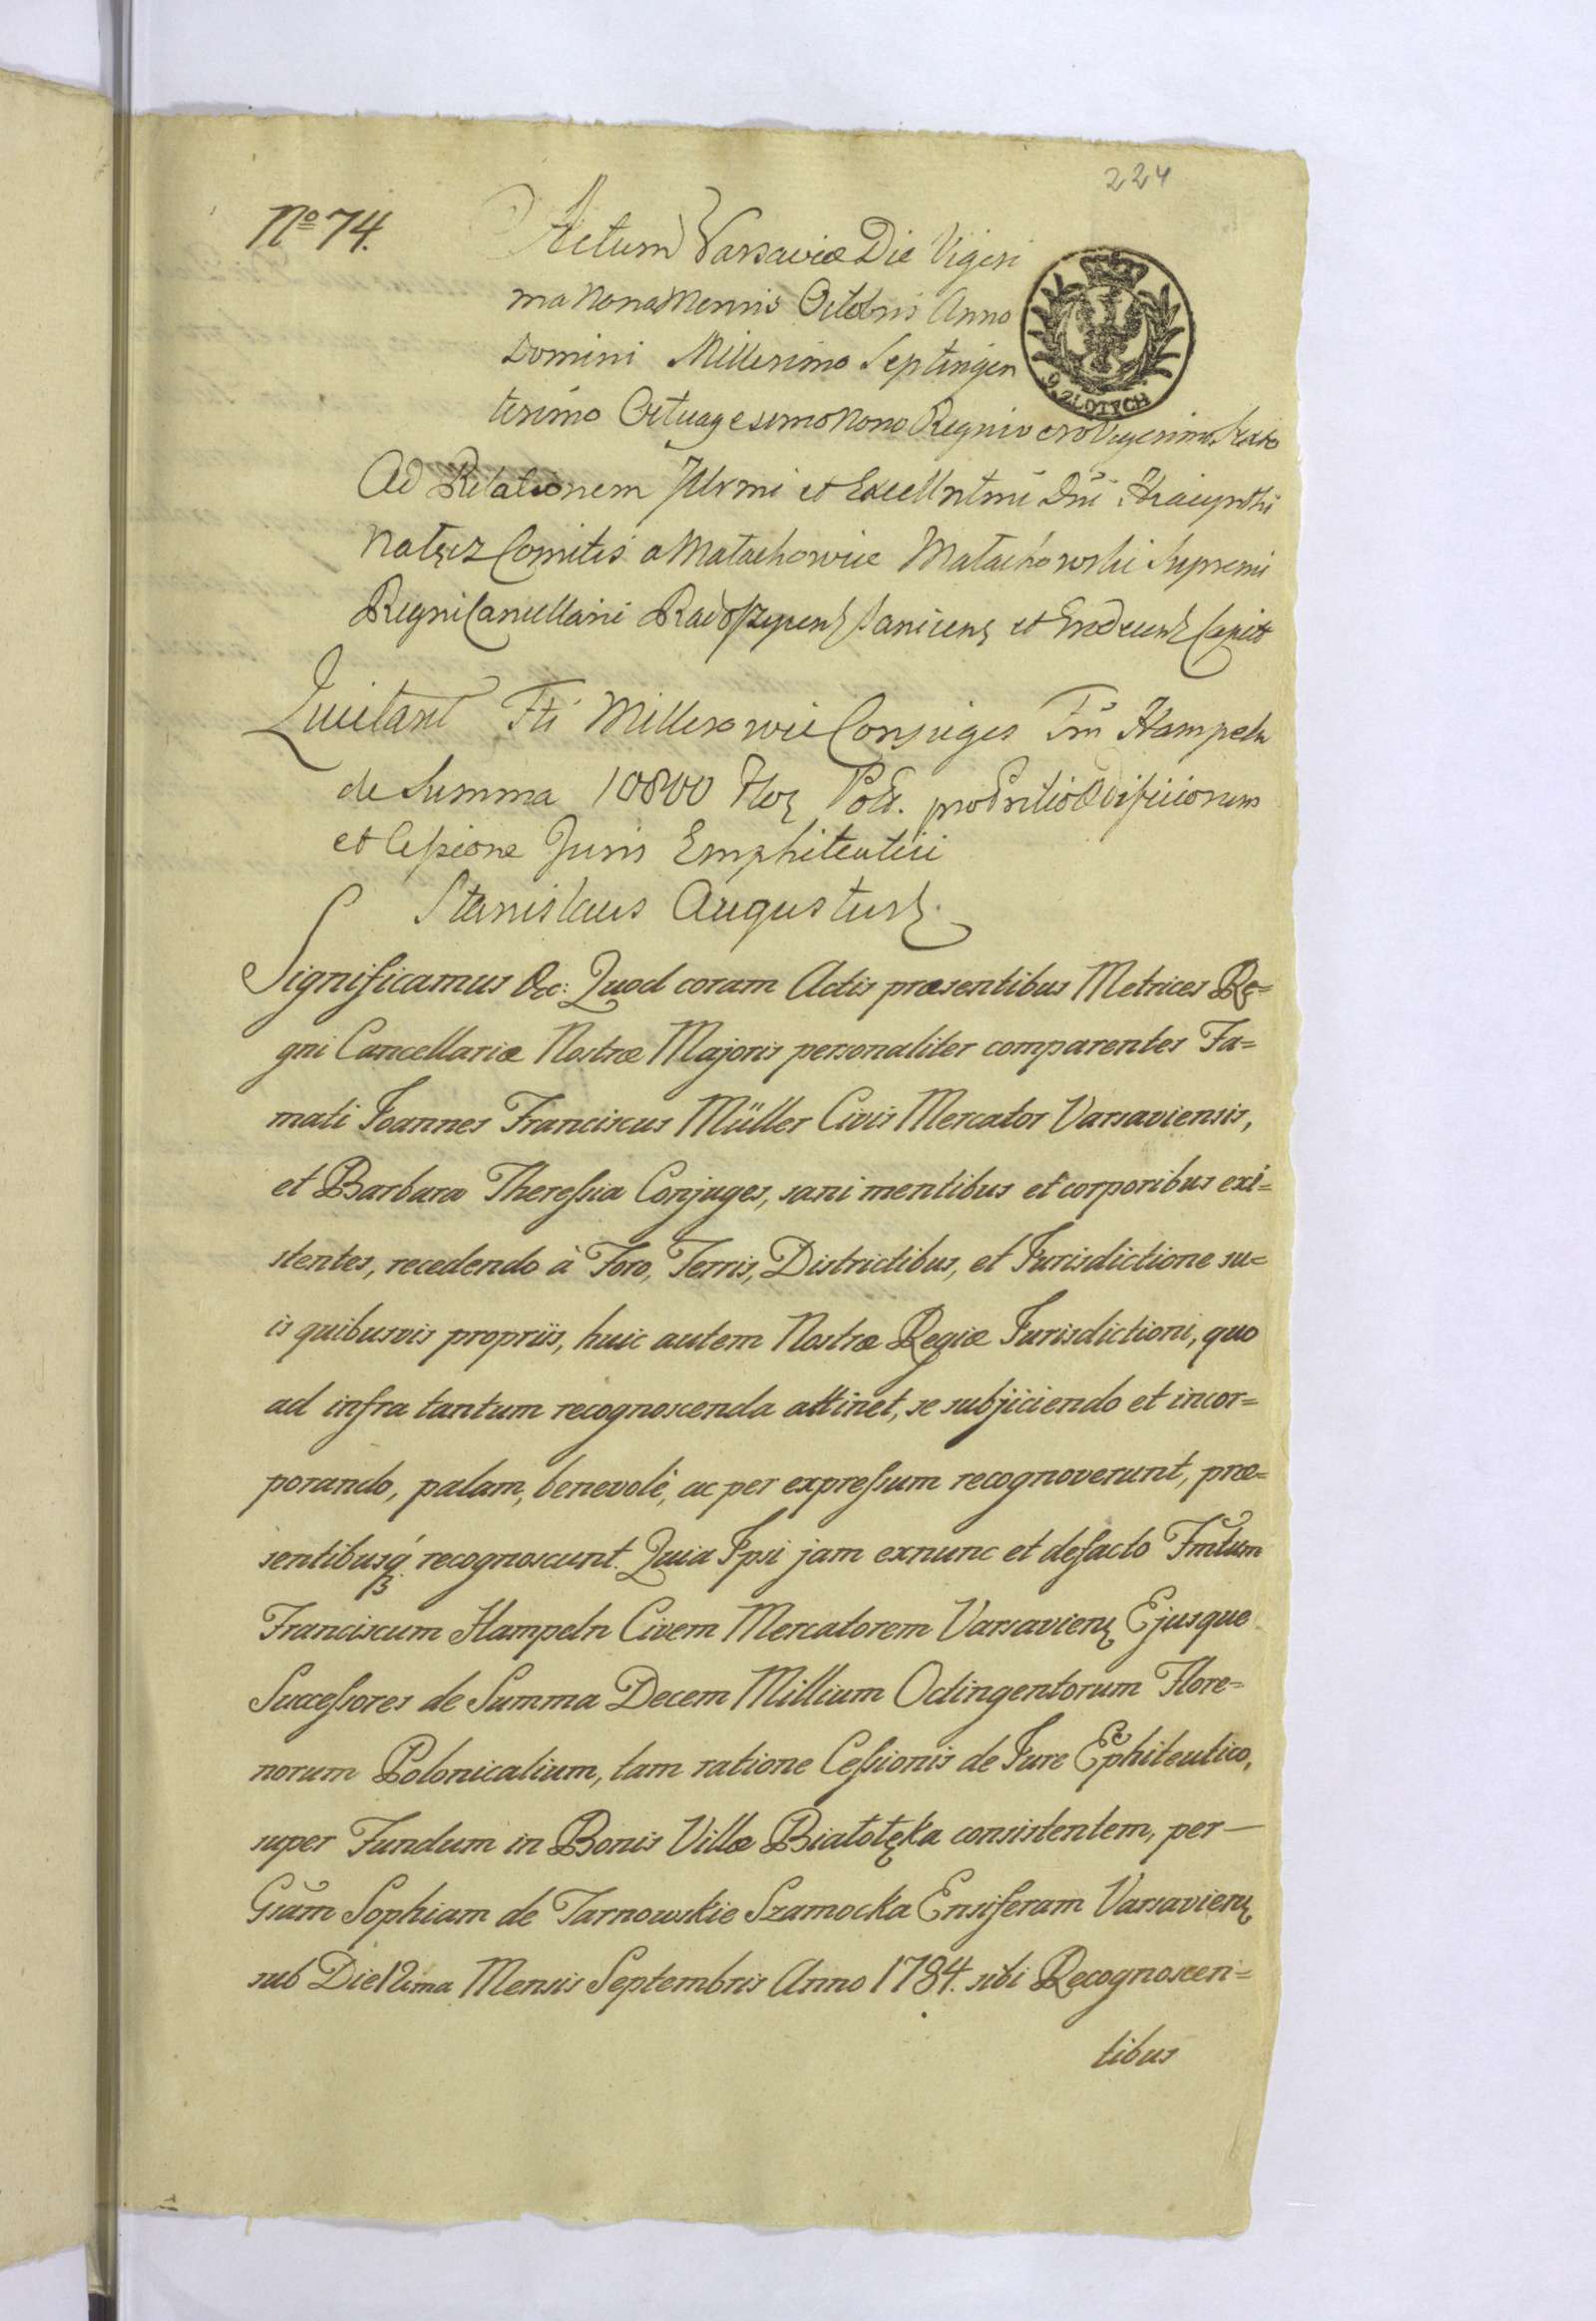 224
Nº 74.
Actum Varsaviæ Die Vigesi
ma Nona Mensis Octobris Anno
Domini Millesimo Septingen
tesimo Octuagesimo Nono Regni vero Vigesimo Sexto
9. ZŁOTYCH
Ad Relationem Illrmi et Excellntmi Dni Hiacynthi
Nałęcz Comitis a Małachowice Małachowski Supremi
Regni Cancellarii Radoszycens Sanicens et Capit
Quietant Fti Millerowie Conjuges Fm Hampeln
de Summa 10800 Flor Pol. pro Pretio Ædificiorum
et Cessione Juris Emphiteutici
Stanislaus Augustus
Significamus &c: Quod coram Actis præsentibus Metrices Re=
gni Cancellariæ Nostræ Majoris personaliter comparentes Fa=
mati Joannes Franciscus Müller Civis Mercator Varsaviensis,
et Barbara Theressia Conjuges, sani mentibus et corporibus exi=
stentes, recedendo à Foro, Terris, Districtibus, et Jurisdictione su=
is quibusvis propriis, huic autem Nostræ Regiæ Jurisdictioni, quo
ad infra tantum recognoscenda attinet, se subjiciendo et incor=
porando, palam, benevolè, ac per expressum recognoverunt, præ=
sentibusq́ recognoscunt. Quia Ipsi jam exnunc et defacto Fmtum
Franciscum Hampeln Civem Mercatorem Varsaviens Ejusque
Successores de Summa Decem Millium Octingentorum Flore=
norum Polonicalium, tam ratione Cessionis de Jure Ephiteutico,
super Fundum in Bonis Villæ Białołęka consistentem, per—
Gsam Sophiam de Tarnowskie Szamocka Ensiferam Varsaviens
sub Die 12ma Mensis Septembris Anno 1784. sibi Recognoscen=
tibus